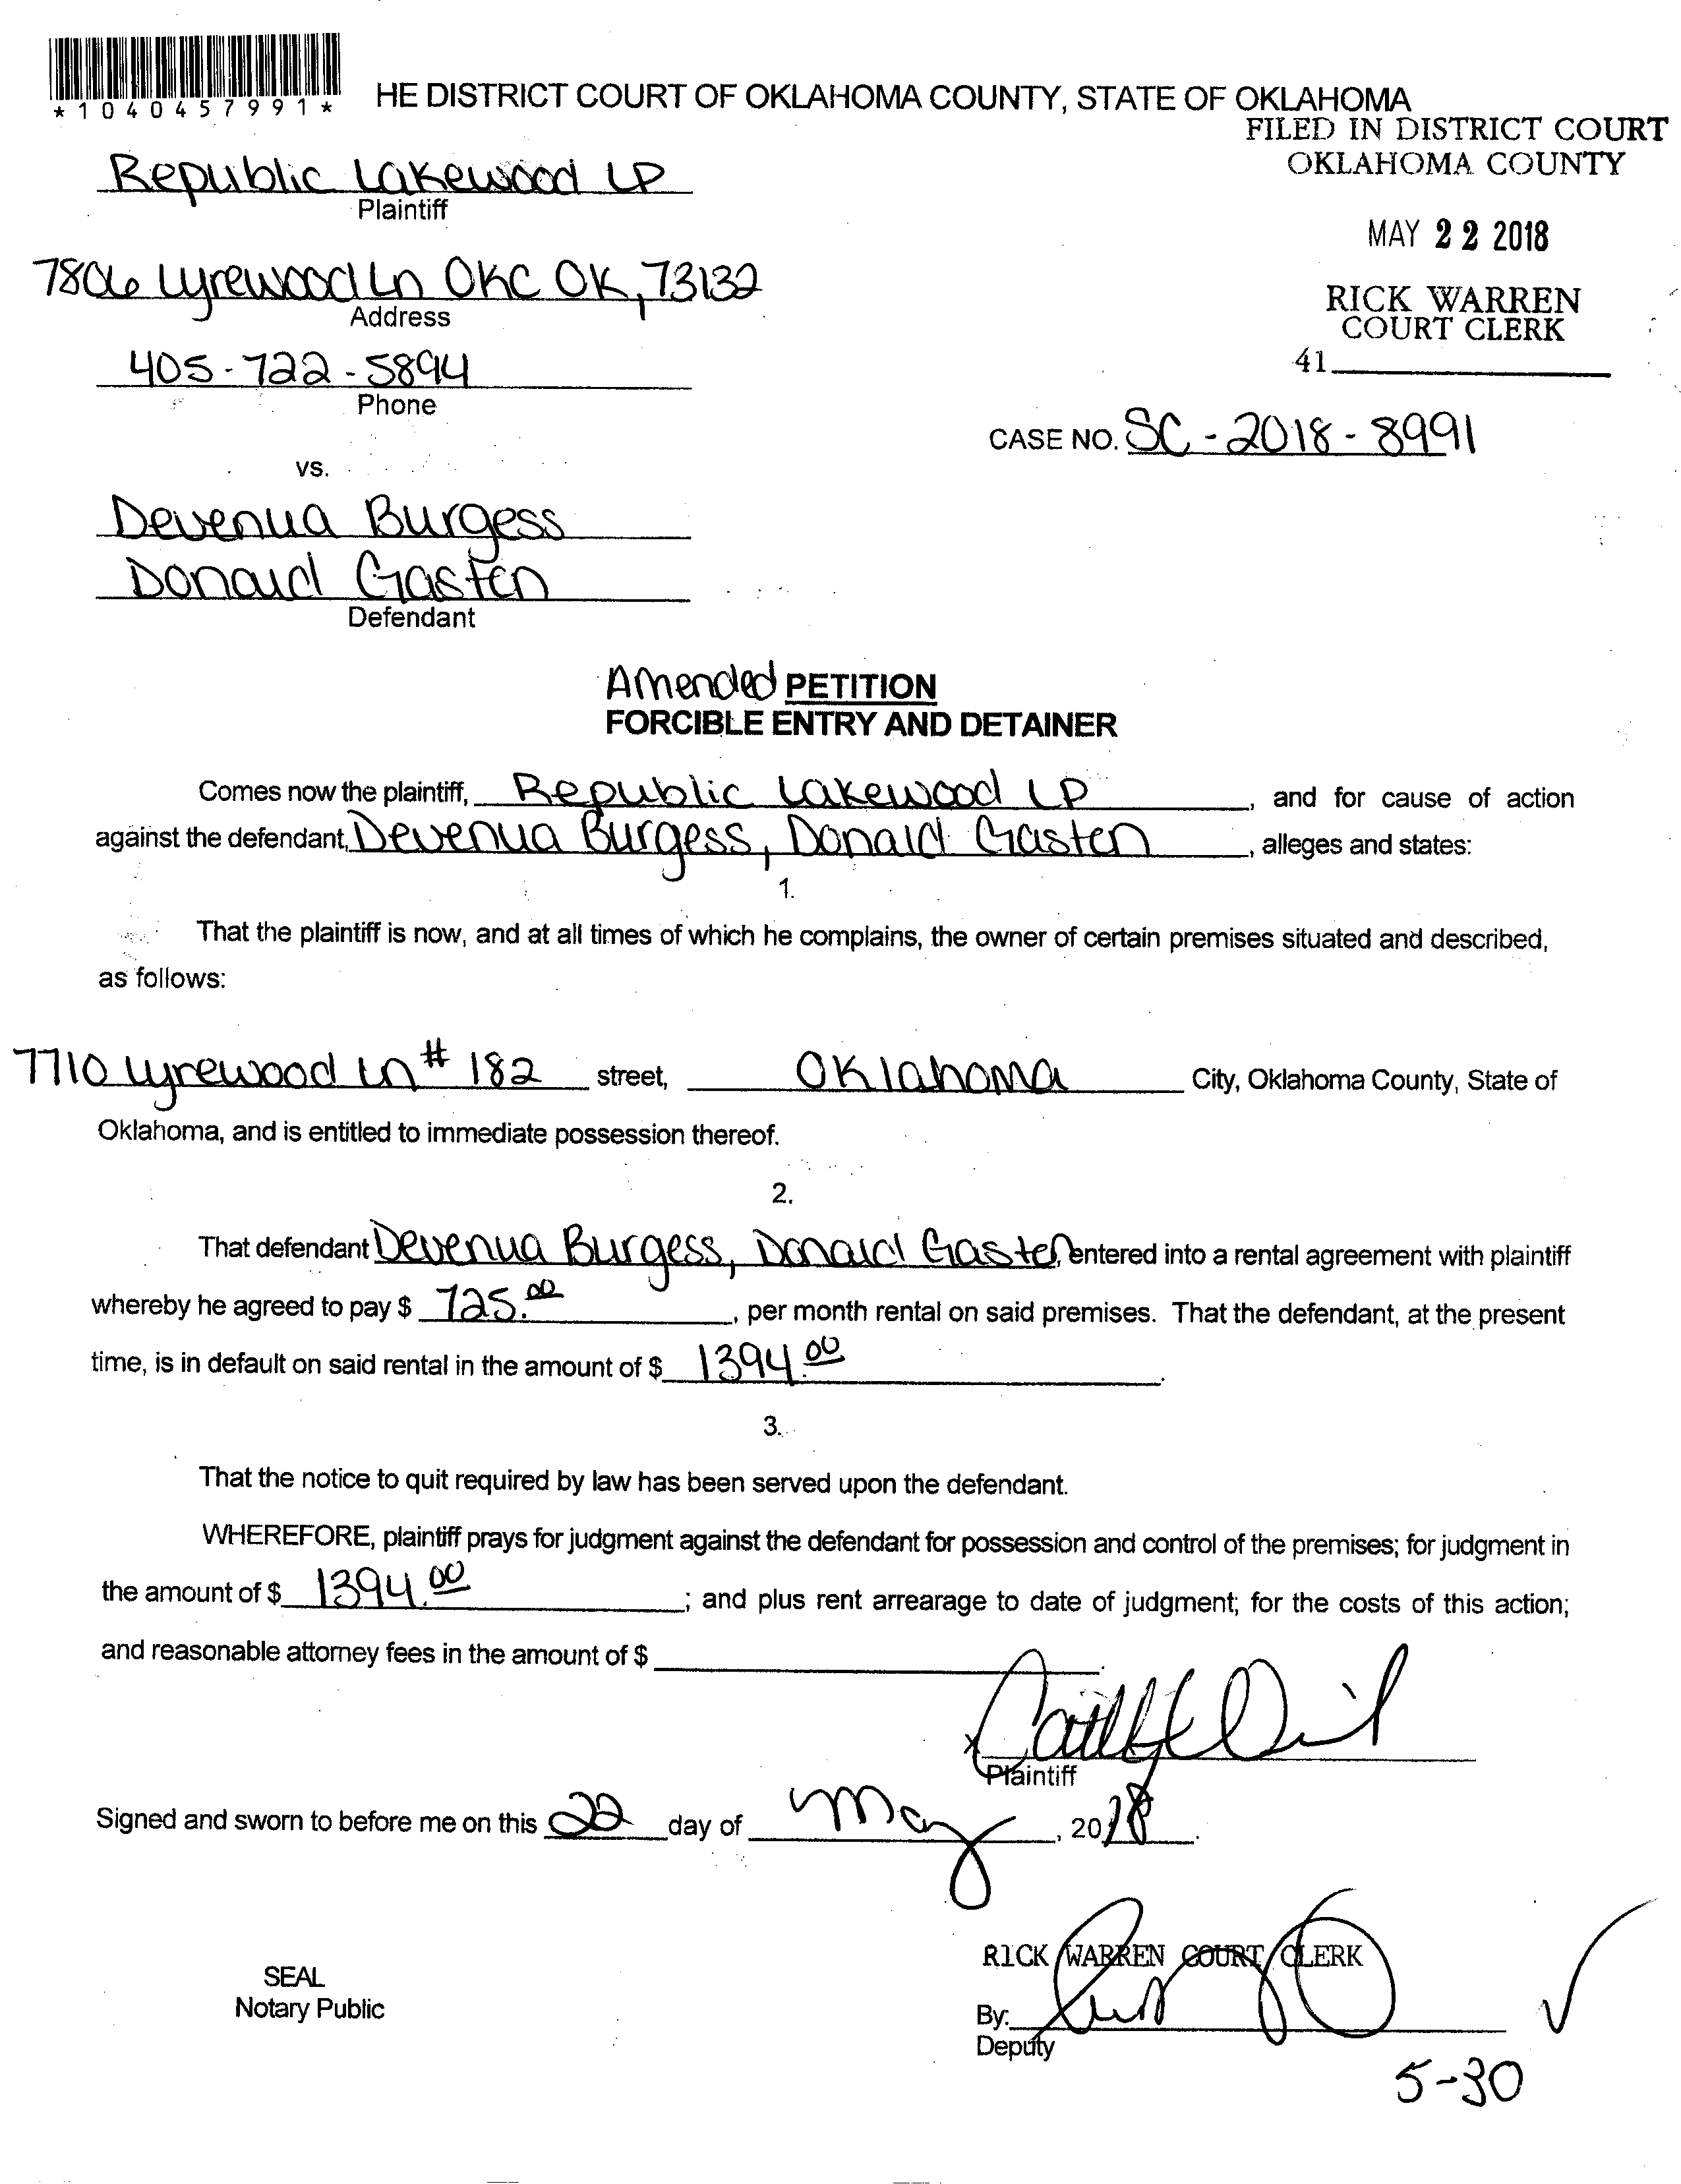 *1040457991*
HE DISTRICT COURT OF OKLAHOMA COUNTY, STATE OF OKLAHOMA
FILED IN DISTRICT COURT
OKLAHOMA COUNTY
Republic Lakewood LP
Plaintiff
MAY 22 2018
7806 Lyrewood Ln OKC OK, 73132
Address
RICK WARREN
COURT CLERK
405-722-5894
Phone
41
CASE NO. SC-2018-8991
vs.
Devenua Burgess
Donald Gasten
Defendant
Amended PETITION
FORCIBLE ENTRY AND DETAINER
Comes now the plaintiff, Republic Lakewood LP, and for cause of action
against the defendant, Devenua Burgess, Donald Gasten, alleges and states:
1.
That the plaintiff is now, and at all times of which he complains, the owner of certain premises situated and described,
as follows:
7710 Lyrewood Ln # 182 street, Oklahoma City, Oklahoma County, State of
Oklahoma, and is entitled to immediate possession thereof.
2.
That defendant Devenua Burgess, Donald Gasten, entered into a rental agreement with plaintiff
whereby he agreed to pay $ 725.00, per month rental on said premises. That the defendant, at the present
time, is in default on said rental in the amount of $ 1394.00.
3.
That the notice to quit required by law has been served upon the defendant.
WHEREFORE, plaintiff prays for judgment against the defendant for possession and control of the premises; for judgment in
the amount of $ 1394.00; and plus rent arrearage to date of judgment; for the costs of this action;
and reasonable attorney fees in the amount of $
x
Plaintiff
Signed and sworn to before me on this 22 day of May, 2018.
RICK WARREN COURT CLERK
SEAL
Notary Public
By:
Deputy
5-30